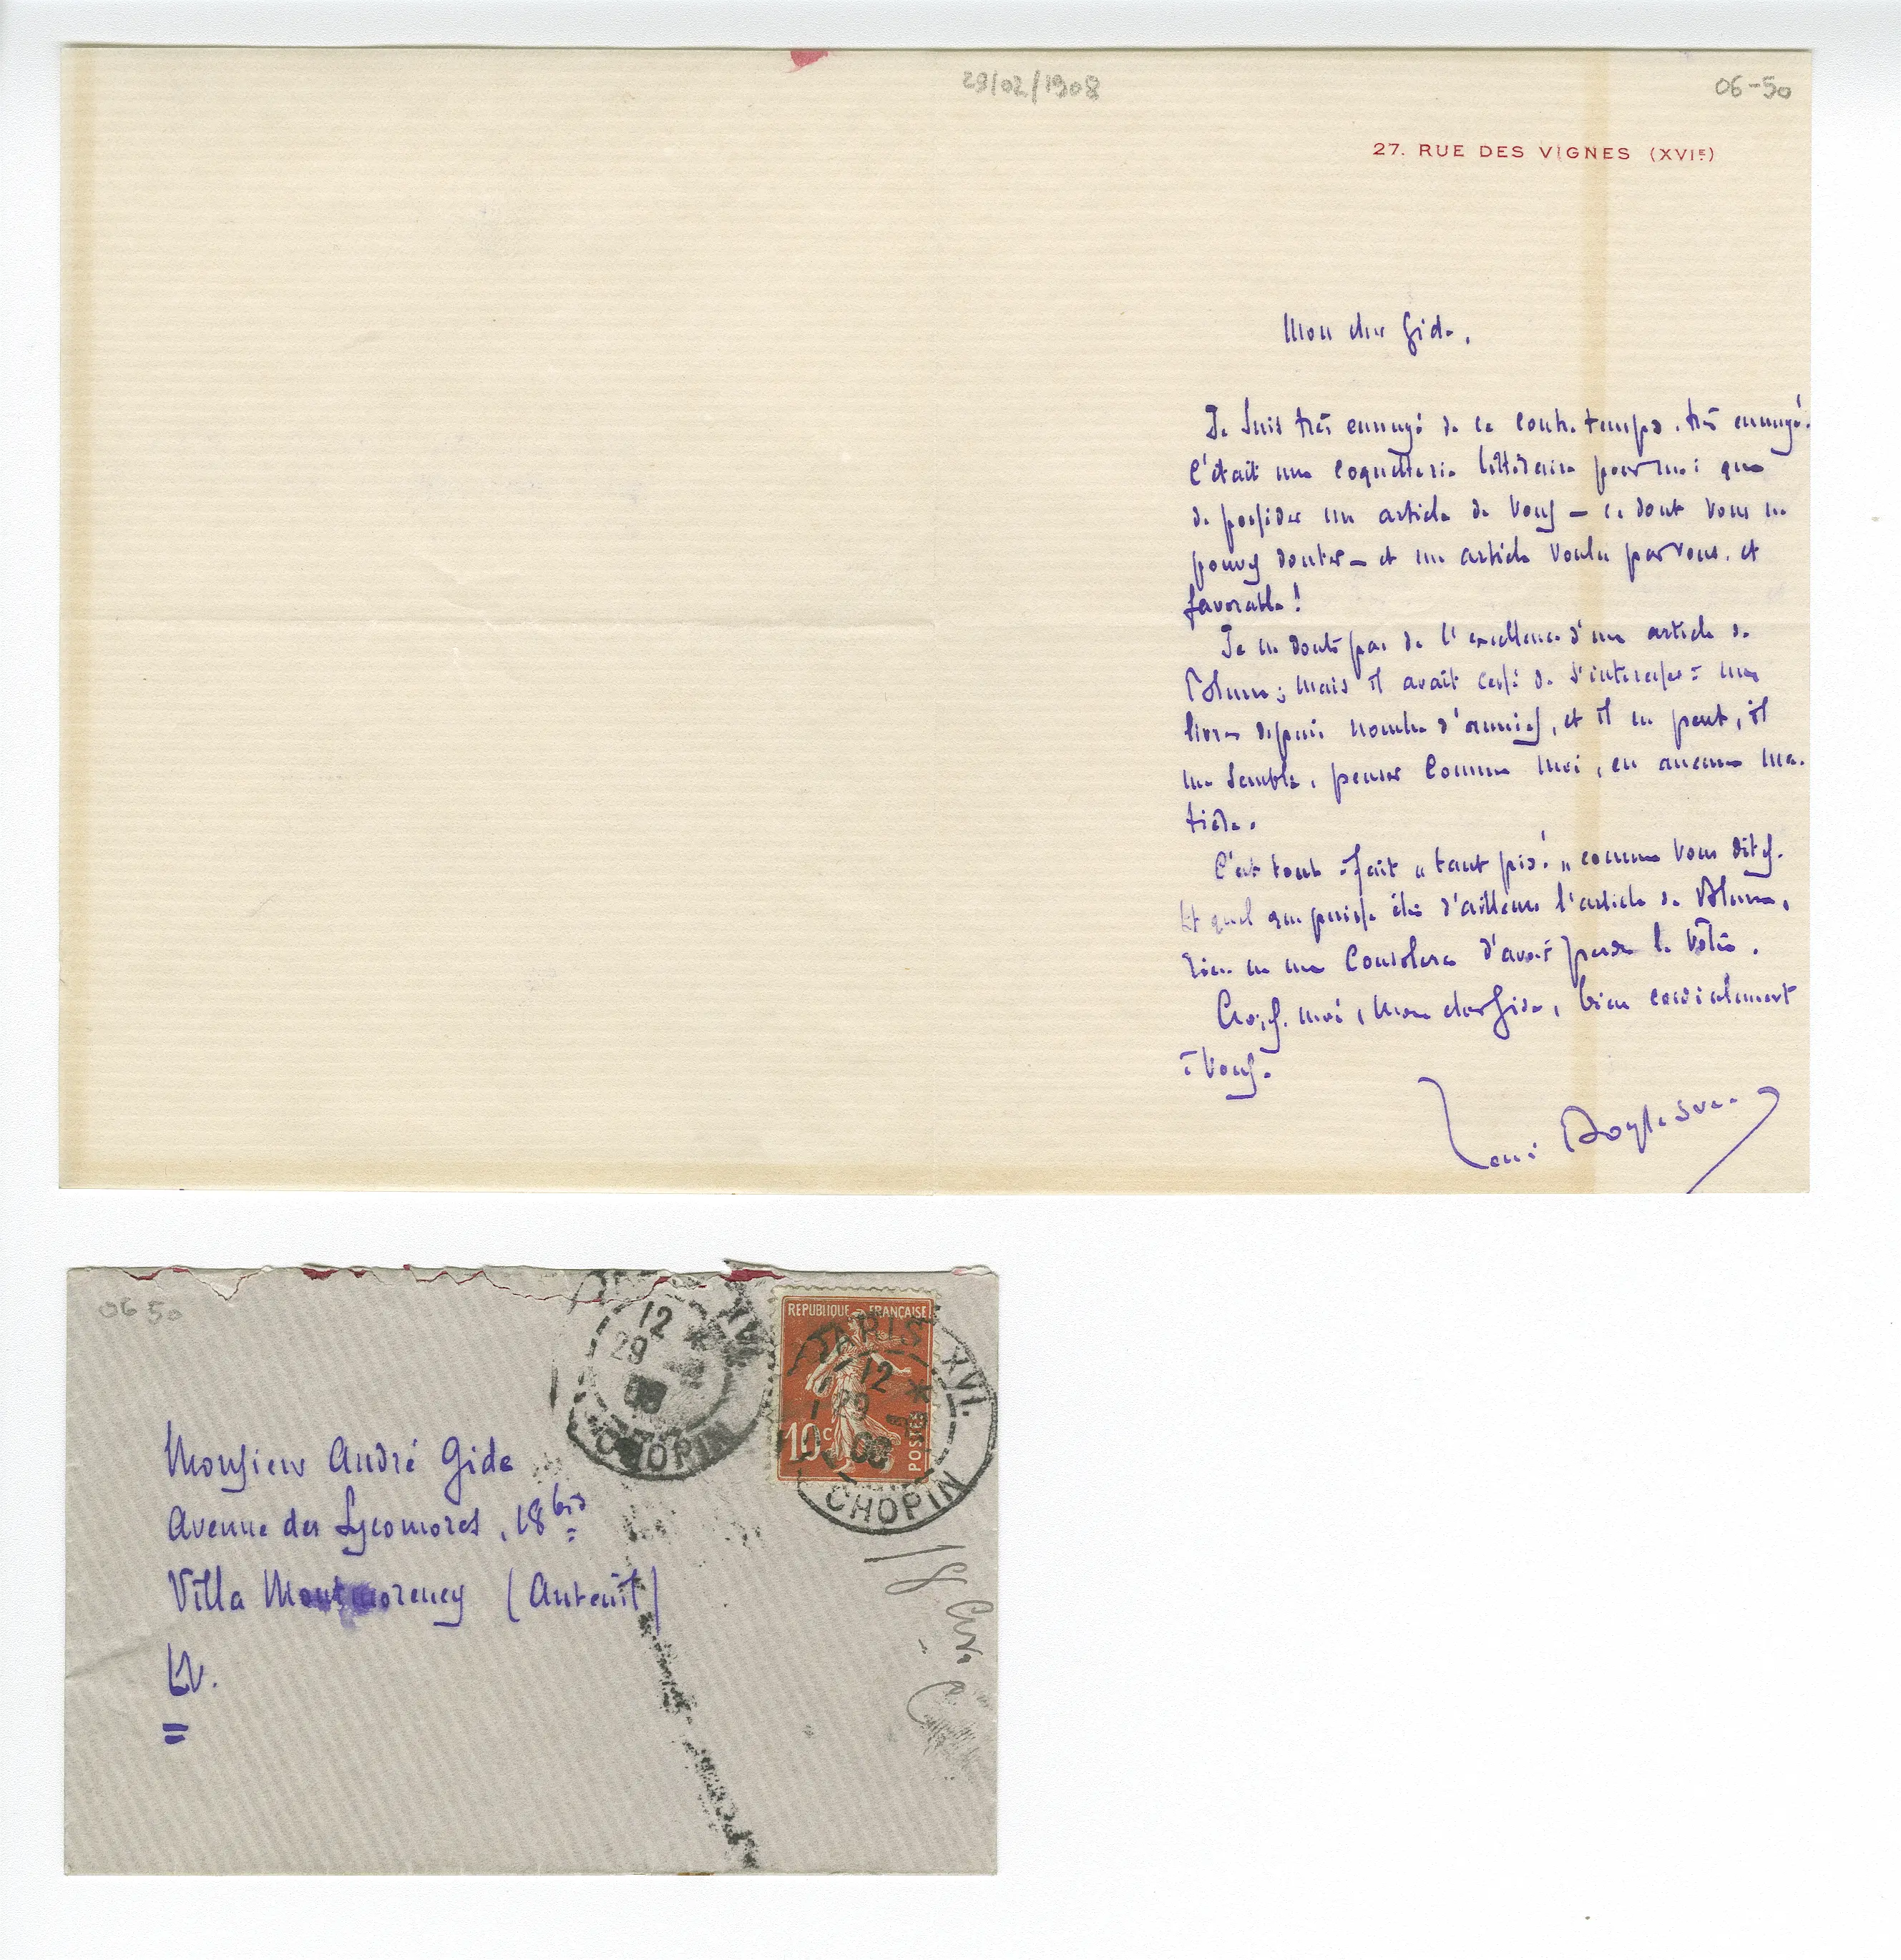 29/02/1908
06-50
27. RUE DES VIGNES (XVIE)
Mon cher Gide,
Je suis très ennuyé de ce contre-temps, très ennuyé.
C'était une coquetterie littéraire pour moi que
de posséder un article de vous — ce dont vous ne
pouvez douter — et un article voulu par vous, et
favorable !
Je ne doute pas de l'excellence d'un article de
Blum ; mais il avait cessé de s'intéresser à mes
livres depuis nombre d'années, et il ne peut, il
me semble, penser comme moi, en aucune ma-
tière.
C'est tout à fait „ tant pis! „ comme vous dites.
Et quel que puisse être d'ailleurs l'article de Blum,
rien ne me consolera d'avoir perdu le vôtre.
Croyez-moi, mon cher Gide, bien cordialement
à vous.
René Boylesve
06 50
12
29
08
XVI
CHOPIN
REPUBLIQUE FRANÇAISE
10c
POSTES
PARIS XVI.
12
29
08
CHOPIN
Monsieur André Gide
Avenue des Sycomores, 18 bis
Villa Montmorency (Auteuil)
EV.
18